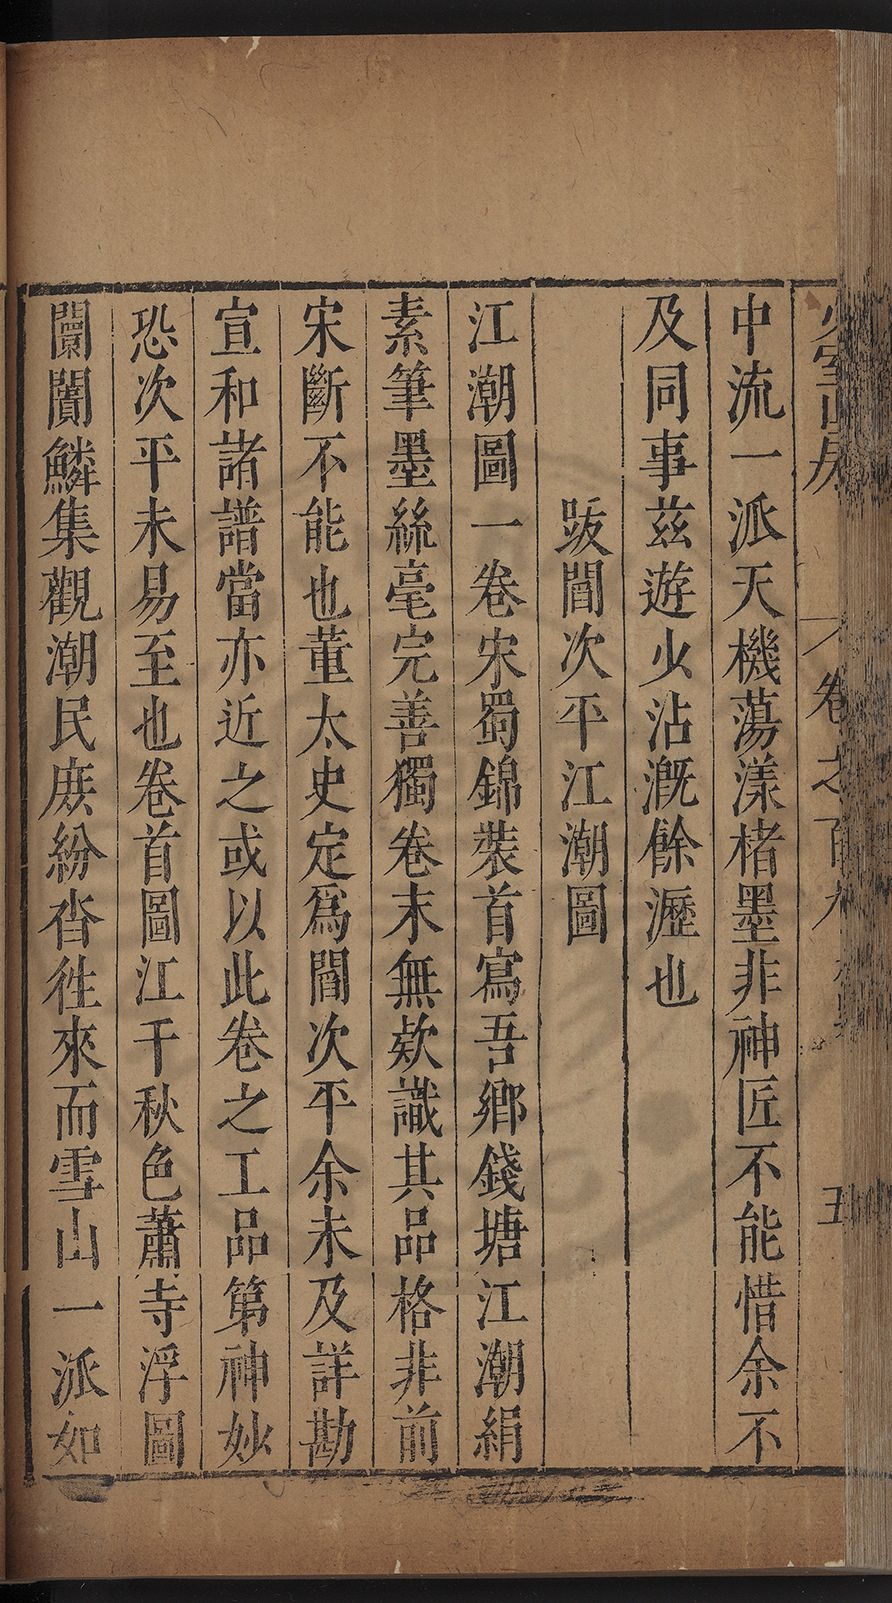 少室山房
卷之百九
五
中流一派天機蕩漾楮墨非神匠不能惜余不
及同事茲遊少沾漑餘瀝也
跋閻次平江潮圖
江潮圖一卷宋蜀錦裝首寫吾鄉錢塘江潮絹
素筆墨絲毫完善獨卷末無欵識其品格非前
宋斷不能也董太史定爲閻次平余未及詳勘
宣和諸譜當亦近之或以此卷之工品第神妙
恐次平未易至也卷首圖江干秋色蕭寺浮圖
闤闠鱗集觀潮民庶紛沓徃來而雪山一派如